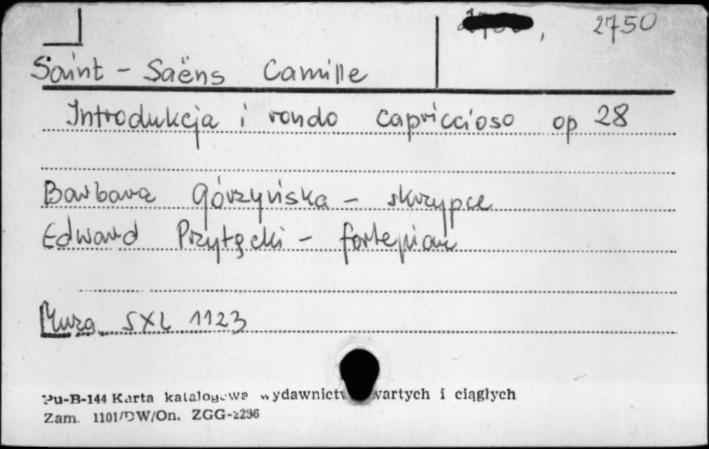 2750
Saint-Saëns Camille
Introdukcja i rondo capriccioso op 28
Barbara Górzyńska - skrzypce
Edward Przytęcki - fortepian
Muza SXL 1123
Pu-B-144 Karta katalogowa wydawnictw zwartych i ciągłych
Zam. 1101/DW/On. ZGG-2296